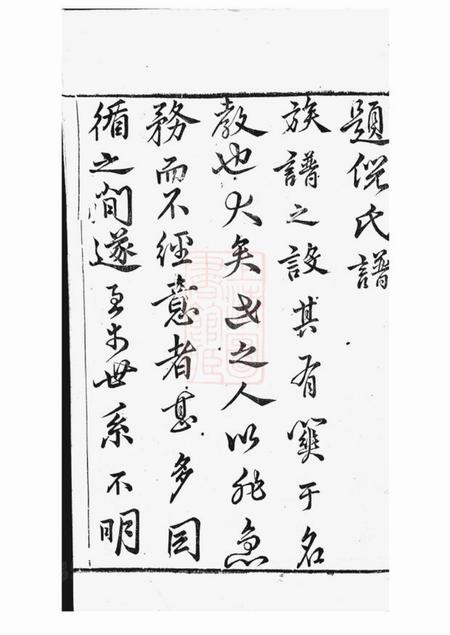 題倪氏譜
族譜之設其有關于名
教也大矣世之人以非急
務而不經意者甚多因
循之間遂至于世系不明